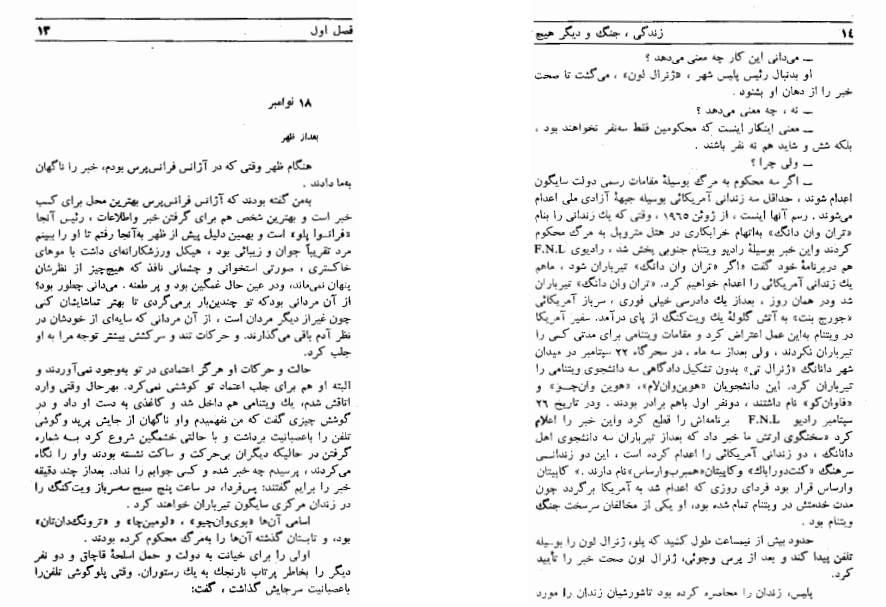 فصل اول
۱۳
۱۸ نوامبر
بعداز ظهر
هنگام ظهر وقتی که در آژانس فرانس‌پرس بودم، خبر را ناگهان
به‌ما دادند .
به‌من گفته بودند که آژانس فرانس‌پرس بهترین محل برای کسب
خبر است و بهترین شخص هم برای گرفتن خبر واطلاعات ، رئیس آنجا
«فرانسوا پلو» است و بهمین دلیل پیش از ظهر به‌آنجا رفتم تا او را ببینم
مرد تقریباً جوان و زیبائی بود ، هیکل ورزشکارانه‌ای داشت با موهای
خاکستری ، صورتی استخوانی و چشمانی نافذ که هیچ‌چیز از نظرشان
پنهان نمی‌ماند، ودر عین حال غمگین بود و پر طعنه . می‌دانی چطور بود؟
از آن مردانی بودکه تو چندین‌بار برمی‌گردی تا بهتر تماشایشان کنی
چون غیراز دیگر مردان است ، از آن مردانی که سایه‌ای از خودشان در
نظر آدم باقی می‌گذارند. و حرکات تند و سرکشش بیشتر توجه مرا به او
جلب کرد.
حالت و حرکات او هرگز اعتمادی در تو به‌وجود نمی‌آوردند و
البته او هم برای جلب اعتماد تو کوششی نمی‌کرد. بهرحال وقتی وارد
اتاقش شدم، یك ویتنامی هم داخل شد و کاغذی به دست او داد و در
گوشش چیزی گفت که من نفهمیدم واو ناگهان از جایش پرید وگوشی
تلفن را باعصبانیت برداشت و با حالتی خشمگین شروع کرد بـه شماره
گرفتن در حالیکه دیگران بی‌حرکت و ساکت نشسته بودند واو را نگاه
می‌کردند ، پرسیدم چه خبر شده و کسی جوابم را نداد. بعداز چند دقیقه
خبر را برایم گفتند: پس‌فردا، در ساعت پنج صبح سه‌سرباز ویت‌کنگ را
در زندان مرکزی سایگون تیرباران خواهند کرد .
اسامی آن‌ها «بوی‌وان‌چیو» ، «لومین‌چا» و «ترونگ‌دان‌تان»
بود، و تابستان گذشته آن‌ها را به‌مرگ محکوم کرده بودند .
اولی را برای خیانت به دولت و حمل اسلحهٔ قاچاق و دو نفر
دیگر را بخاطر پرتاب نارنجك به یك رستوران. وقتی پلوگوشی تلفن‌را
باعصبانیت سرجایش گذاشت ، گفت:
زندگی ، جنگ و دیگر هیچ
۱۴
ــ می‌دانی این کار چه معنی می‌دهد ؟
او بدنبال رئیس پلیس شهر ، «ژنرال لون» ، می‌گشت تا صحت
خبر را از دهان او بشنود .
ــ نه ، چه معنی می‌دهد ؟
ــ معنی اینکار اینست که محکومین فقط سه‌نفر نخواهند بود ،
بلکه شش و شاید هم نه نفر باشند .
ــ ولی چرا ؟
ــ اگر سه محکوم به مرگ بوسیلهٔ مقامات رسمی دولت سایگون
اعدام شوند ، حداقل سه زندانی آمریکائی بوسیله جبههٔ آزادی ملی اعدام
می‌شوند . رسم آنها اینست ، از ژوئن ۱۹۶۵ ، وقتی که یك زندانی را بنام
«تران وان دانگ» به‌اتهام خرابکاری در هتل متروپل به مرگ محکوم
کردند واین خبر بوسیلهٔ رادیو ویتنام جنوبی پخش شد ، رادیوی F.N.L
هم دربرنامهٔ خود گفت «اگر «تران وان دانگ» تیرباران شود ، ماهم
یك زندانی آمریکائی را اعدام خواهیم کرد. «تران وان دانگ» تیرباران
شد ودر همان روز ، بعداز یك دادرسی خیلی فوری ، سرباز آمریکائی
«جورج بنت» به آتش گلولهٔ یك ویت‌کنگ از پای درآمد. سفیر آمریکا
در ویتنام به‌این عمل اعتراض کرد و مقامات ویتنامی برای مدتی کسی را
تیرباران نکردند ، ولی بعداز سه ماه ، در سحرگاه ۲۲ سپتامبر در میدان
شهر دانانگ «ژنرال تی» بدون تشکیل دادگاهی سه دانشجوی ویتنامی را
تیرباران کرد. این دانشجویان «هوین‌وان‌لام»، «هوین وان‌چـز» و
«فاوان‌کو» نام داشتند ، دونفر اول باهم برادر بودند . ودر تاریخ ۲۶
سپتامبر رادیو F.N.L برنامه‌اش را قطع کرد واین خبر را اعلام
کرد «سخنگوی ارتش ما خبر داد که بعداز تیرباران سه دانشجوی اهل
دانانگ ، دو زندانی آمریکائی را اعدام کرده است ، این دو زندانـی
سرهنگ «کنت‌دوراباك» وکاپیتان«همبرب‌وارساس»نام دارند .» کاپیتان
وارساس قرار بود فردای روزی که اعدام شد به آمریکا برگردد چون
مدت خدمتش در ویتنام تمام شده بود، او یکی از مخالفان سرسخت جنگ
ویتنام بود .
حدود بیش از نیمساعت طول کشید که پلو، ژنرال لون را بوسیله
تلفن پیدا کند و بعد از پرس وجوئی، ژنرال لون صحت خبر را تأیید
کرد.
پلیس، زندان را محاصره کرده بود تاشورشیان زندان را مورد